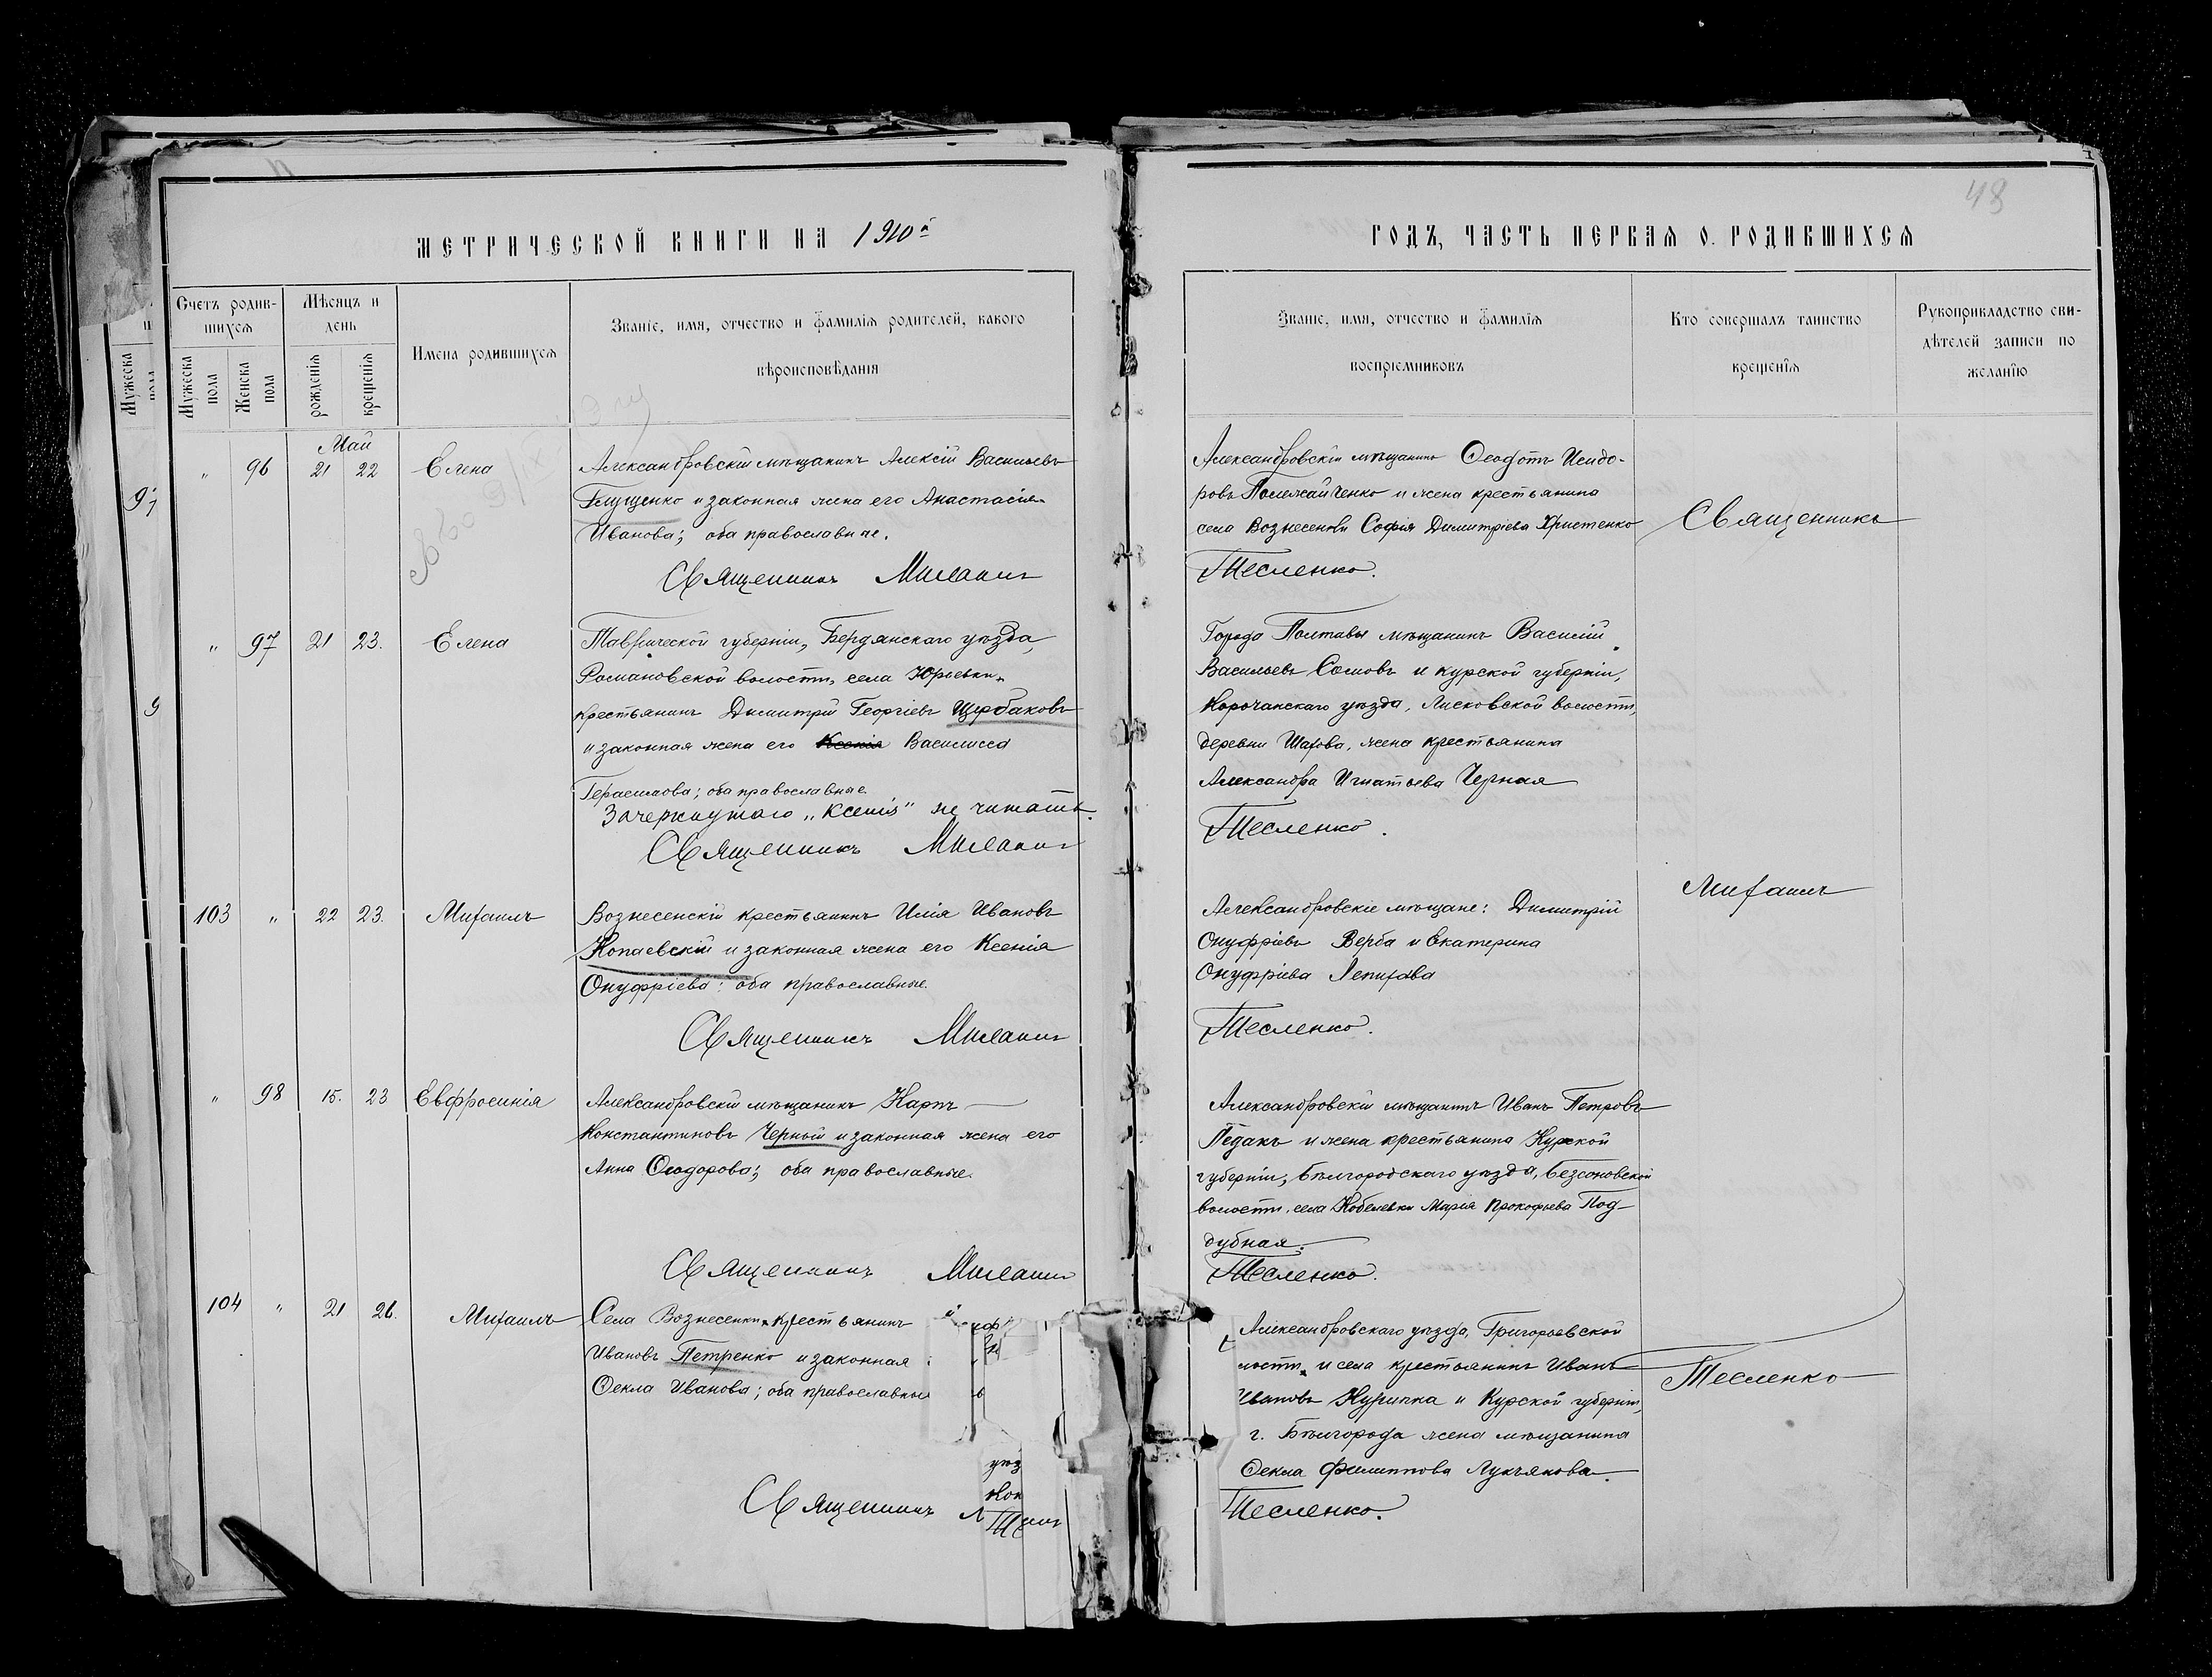 48
МЕТРИЧЕСКОЙ КНИГИ НА 1910й
ГОДЪ, ЧАСТЬ ПЕРВАЯ О РОДИВШИХСЯ
Счетъ родив-
шихся
Мужеска
пола
Женска
пола
Мѣсяцъ и
день
рожденія
крещенія
Имена родившихся
Званіе, имя, отчество и фамилія родителей, какого
вѣроисповѣданія
Званіе, имя, отчество и фамилія
воспріемниковъ
Кто совершалъ таинство
крещенія
Рукоприкладство сви-
дѣтелей записи по
желанію
Мужеска
пола
Май
" 96 21 22 Елена
Александровскій мѣщанинъ Алексій Васильевъ
Глущенко и законная жена его Анастасія
Иванова; оба православные.
Священникъ
Александровскій мѣщанинъ Ѳеодотъ Исидо-
ровъ Полежайченко и жена крестьянина
села Вознесенки Софія Димитріева Христенко
Тесленко.
Священникъ
" 97 21 23. Елена
Таврической губерніи, Бердянскаго уѣзда,
Романовской волости, села Юрьевки
крестьянинъ Димитрій Георгіевъ Щербаковъ
и законная жена его Ксенія Василисса
Герасимова; оба православные.
Зачеркнутаго „Ксенія" не читать.
Священникъ
Города Полтавы мѣщанинъ Василій
Васильевъ Сомовъ и Курской губерніи,
Корочанскаго уѣзда, Лисковской волости,
деревни Шахова, жена крестьянина
Александра Игнатьева Черная
Тесленко.
103 " 22 23. Михаилъ
Вознесенскій крестьянинъ Илія Ивановъ
Копаевскій и законная жена его Ксенія
Онуфріева: оба православные.
Священникъ
Александровскіе мѣщане: Димитрій
Онуфріевъ Верба и Екатерина
Онуфріева Лепихова
Тесленко.
Михаилъ
" 98 15. 23 Евфросинія
Александровскій мѣщанинъ Карпъ
Константиновъ Черный и законная жена его
Анна Ѳеодорова; оба православные.
Священникъ
Александровскій мѣщанинъ Иванъ Петровъ
Педакъ и жена крестьянина Курской
губерніи, Бѣлгородскаго уѣзда, Безсоновской
волости, села Кобелевки Марія Прокофьева Под-
дубная.
Тесленко.
104 " 21 26. Михаилъ
Села Вознесенки крестьянинъ
Ивановъ Петренко и законная
Ѳекла Иванова; оба православны
уѣз
Священникъ
Александровскаго уѣзда, Григорьевской
лости и села крестьянинъ Иванъ
Ивановъ Курипка и Курской губерніи,
г. Бѣлгорода жена мѣщанина
Ѳекла Филиппова Лукъянова.
Тесленко.
Тесленко